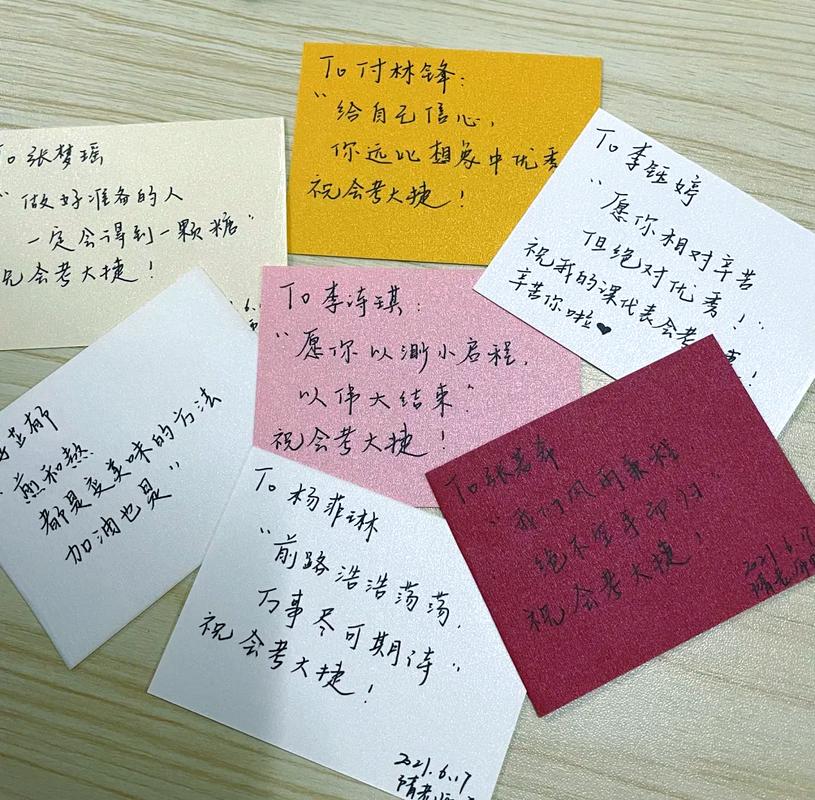 To 付林锋:
"给自己信心,
你远比想象中优秀
祝会考大捷!
To 张梦瑶
"做好准备的人
一定会得到一颗糖"
祝会考大捷!
6.
To 李钰婷
"愿你相对辛苦
但绝对优秀!"
祝我的课代表会考
辛苦你啦♥
!
To 李诗琪:
"愿你以渺小启程,
以伟大结束"
祝会考大捷!
芷郁
"煎和熬
都是变美味的方法
加油也是"
To 杨菲琳
"前路浩浩荡荡,
万事尽可期待"
祝会考大捷!
2021.6.17
隋老师
To 张若奔
"我们风雨兼程
绝不空手而归"
祝会考大捷!
2021.6.17
隋老师